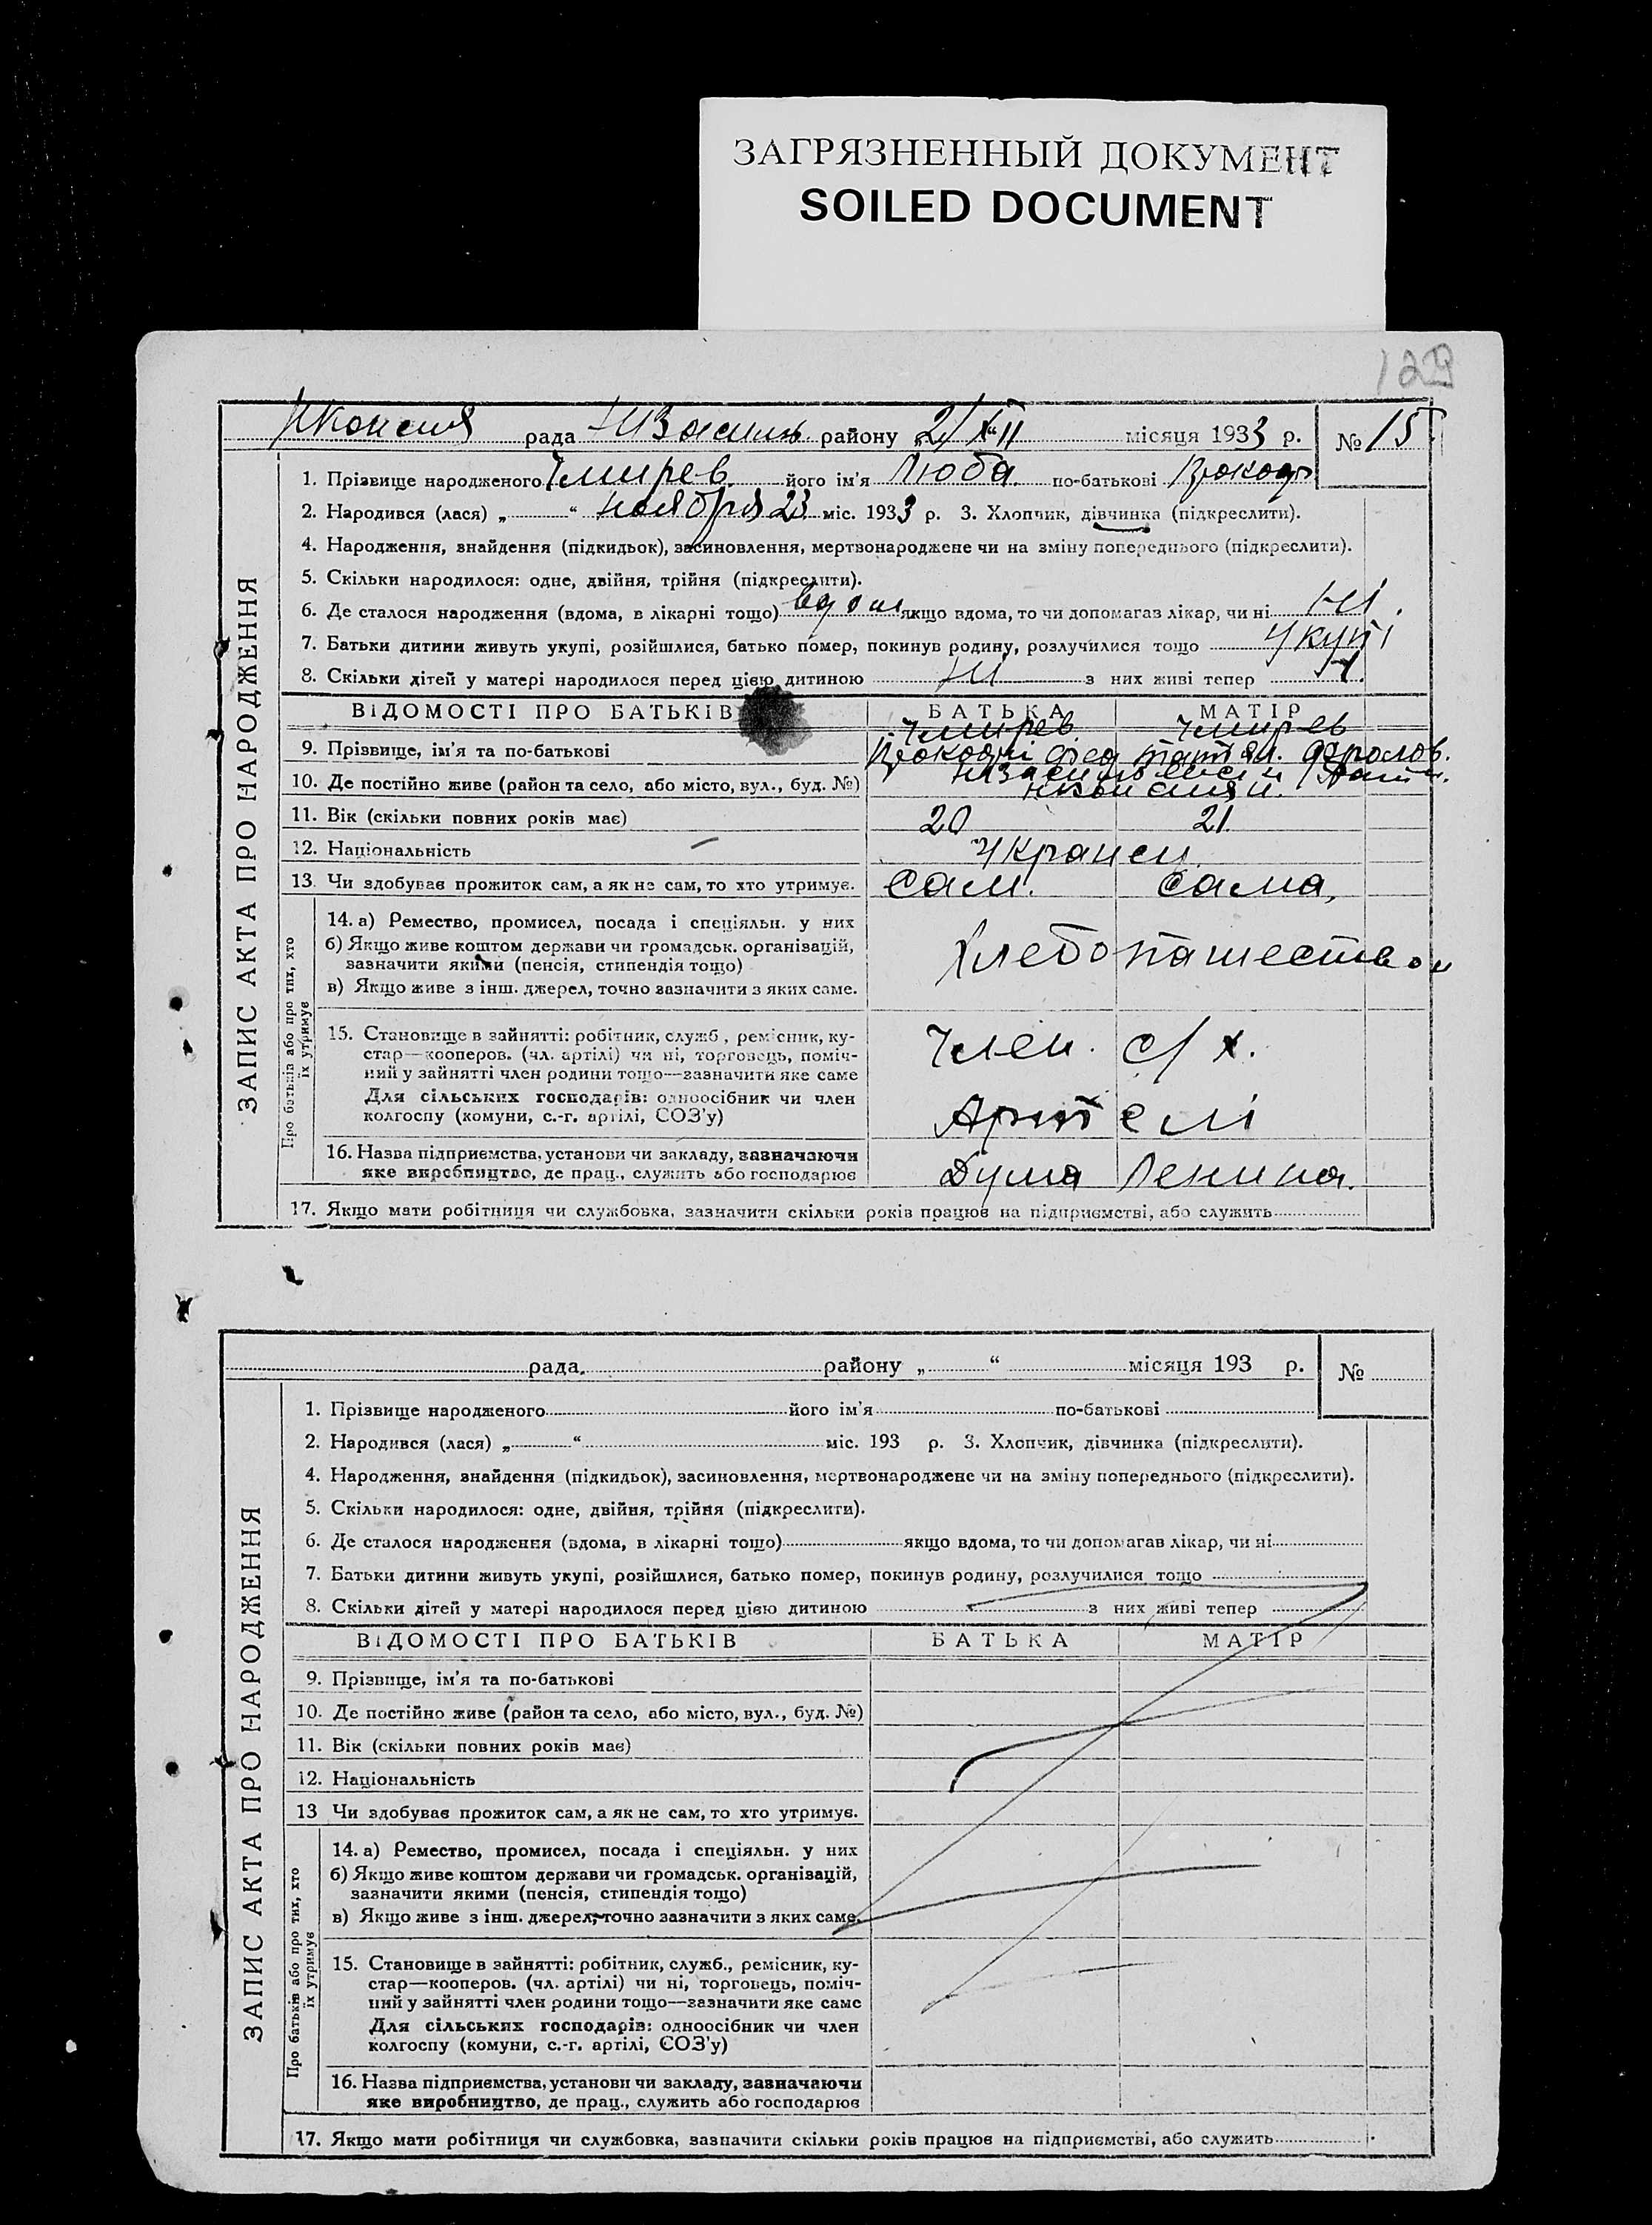 ЗАГРЯЗНЕННЫЙ ДОКУМЕНТ
SOILED DOCUMENT
129
рада район у 1933 р. місяця № 15
1. Прізвище народженого Чмирев його ім'я Люба. по-батькові
2. Народився (лася) „ “ ноября 23 міс. 1933 р. 3. Хлопчик, дівчинка (підкреслити).
4. Народження, знайдення (підкидьок), засиновлення, мертвонароджене чи на зміну попереднього (підкреслити).
5. Скільки народилося: одне, двійня, трійня (підкреслити).
6. Де сталося народження (вдома, в лікарні тощо) вдома якщо вдома, то чи допомагав лікар, чи ні ні.
7. Батьки дитини живуть укупі, розійшлися, батько помер, покинув родину, розлучилися тощо укупі
8. Скільки дітей у матері народилося перед цією дитиною ні з них живі тепер
ВІДОМОСТІ ПРО БАТЬКІВ БАТЬКА МАТІР
Чмирев Чмирев
9. Прізвище, ім'я та по-батькові
10. Де постійно живе (район та село, або місто, вул., буд. №)
11. Вік (скільки повних років має) 20 21.
12. Національність Украинен.
13. Чи здобував прожиток сам, а як не сам, то хто утримує. Сам. Сама,
14. а) Ремество, промисел, посада і спеціяльн. у них
б) Якщо живе коштом держави чи громадськ. організацій,
зазначити якими (пенсія, стипендія тощо)
Хлебопашеством
в) Якщо живе з інш. джерел, точно зазначити з яких саме.
15. Становище в зайнятті: робітник, служб., ремісник, ку-
стар—кооперов. (чл. артілі) чи ні, торговець, поміч-
ний у зайнятті член родини тощо—зазначити яке саме
Член. с/х.
Для сільських господарів: одноосібник чи член
колгоспу (комуни, с.-г. артілі, СОЗ'у)
Артелі
16. Назва підприємства, установи чи закладу, зазначаючи
яке виробництво, де прац., служить або господарює
Дума Ленина.
17. Якщо мати робітниця чи службовка, зазначити скільки років працює на підприємстві, або служить
ЗАПИС АКТА ПРО НАРОДЖЕННЯ
Про батьків або про тих, хто
їх утримує
рада район у „ “ місяця 193 р. №
1. Прізвище народженого його ім'я по-батькові
2. Народився (лася) „ “ міс. 193 р. 3. Хлопчик, дівчинка (підкреслити).
4. Народження, знайдення (підкидьок), засиновлення, мертвонароджене чи на зміну попереднього (підкреслити).
5. Скільки народилося: одне, двійня, трійня (підкреслити).
6. Де сталося народження (вдома, в лікарні тощо) якщо вдома, то чи допомагав лікар, чи ні
7. Батьки дитини живуть укупі, розійшлися, батько помер, покинув родину, розлучилися тощо
8. Скільки дітей у матері народилося перед цією дитиною з них живі тепер
ВІДОМОСТІ ПРО БАТЬКІВ БАТЬКА МАТІР
9. Прізвище, ім'я та по-батькові
10. Де постійно живе (район та село, або місто, вул., буд. №)
11. Вік (скільки повних років має)
12. Національність
13 Чи здобував прожиток сам, а як не сам, то хто утримує.
14. а) Ремество, промисел, посада і спеціяльн. у них
б) Якщо живе коштом держави чи громадськ. організацій,
зазначити якими (пенсія, стипендія тощо)
в) Якщо живе з інш. джерел, точно зазначити з яких саме.
15. Становище в зайнятті: робітник, служб., ремісник, ку-
стар—кооперов. (чл. артілі) чи ні, торговець, поміч-
ний у зайнятті член родини тощо—зазначити яке саме
Для сільських господарів: одноосібник чи член
колгоспу (комуни, с.-г. артілі, СОЗ'у)
16. Назва підприємства, установи чи закладу, зазначаючи
яке виробництво, де прац., служить або господарює
17. Якщо мати робітниця чи службовка, зазначити скільки років працює на підприємстві, або служить
ЗАПИС АКТА ПРО НАРОДЖЕННЯ
Про батьків або про тих, хто
їх утримує